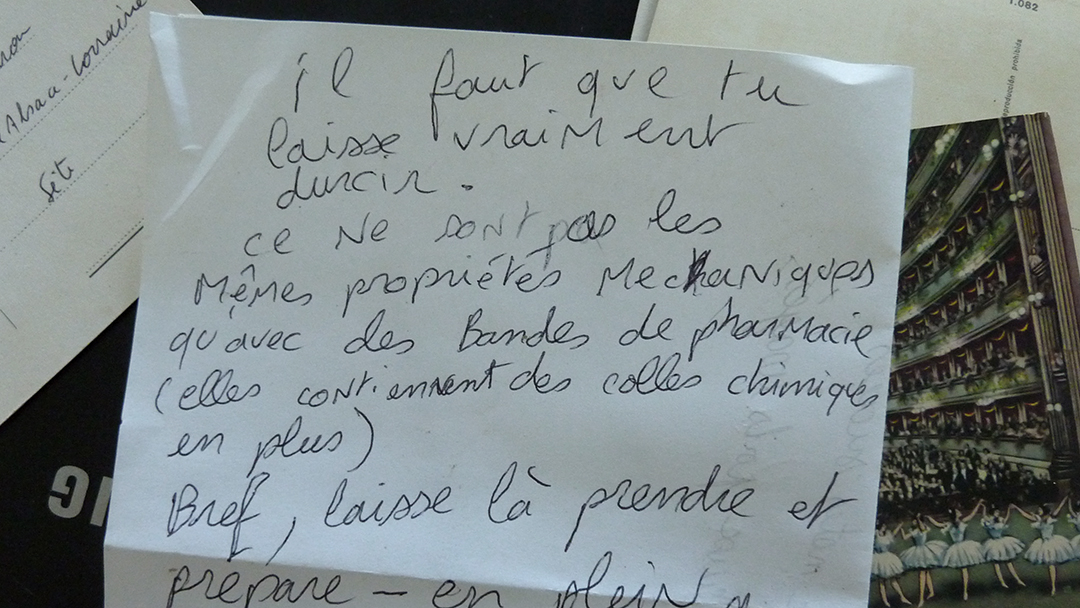 Alsace-Lorraine
Sète
1.082
il faut que tu
laisse vraiment
durcir.
ce ne sont pas les
mêmes propriétés mechaniques
qu'avec des Bandes de pharmacie
(elles contiennent des colles chimiques
en plus)
Bref, laisse là prendre et
prepare - en plein